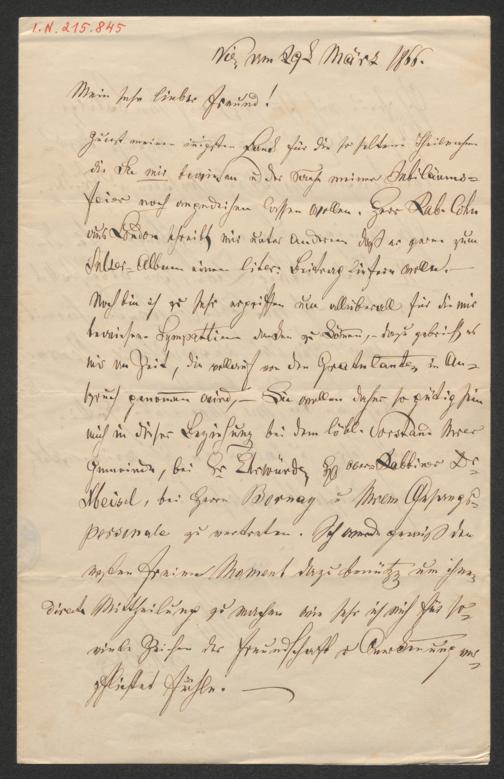 I.N. 215.845
Wien, am 29t März 1866.
Mein sehr lieber Freund!
Zuerst meinen innigsten Dank für die so seltene Theilnahme
die Sie mir beweisen u der Sache meiner Jubiläums-
feier noch angedeihen lassen wollen. Herr Rab. Cohn
aus London schreibt mir unter Anderem daß er gerne zum
Sulzer-Album einen liter. Beitrag liefern wolle. –
Noch bin ich zu sehr ergriffen um allüberall für die mir
bewiesene Sympathien danken zu können, – dazu gebricht es
mir an Zeit, die vollauf von den Gratulanten in An-
spruch genommen wird, – Sie wollen daher so gütig sein
mich in dieser Beziehung bei dem löbl. Vorstand Ihrer
Gemeinde, bei Sr Ehrwürden H ober Rabbiner Dr
Meisel, bei Herrn Bornay u Ihrem Gesangs-
personale zu vertreten. Ich werde gewiß den
ersten freien Moment dazu benützen um ihnen
direkte Mittheilung zu machen wie sehr ich mich für so
viele Zeichen der Freundschaft u Anerkennung ver-
pflichtet fühle. –